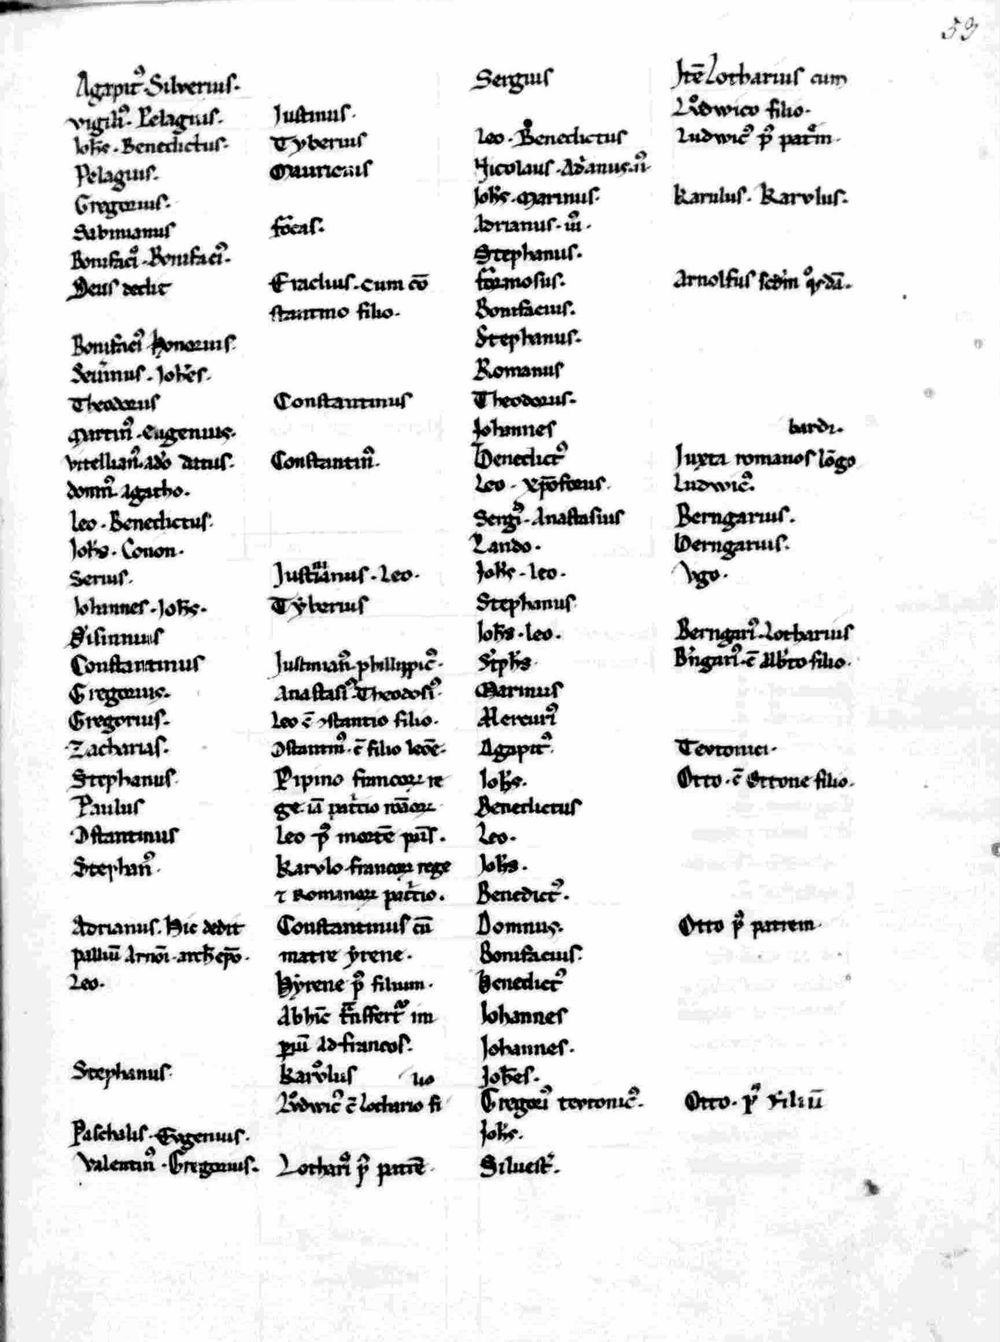 53
Agapit᾽ Silverius.
vigili᾽. Pelagius.
Joh̅s. Benedictus.
Pelagius.
Gregorius.
Sabinianus
Bonifaci᾽. Bonifaci᾽.
Deus dedit
Bonifaci᾽ honorius.
Seu᾽inus. Joh̅es.
Theodorus
Martin᾽. Eugenius.
vitellian᾽. ado datus.
domn᾽. agatho.
Leo. Benedictus.
Joh̅s. Conon.
Serius.
Johannes. Joh̅s.
Sisinnius
Constantinus
Gregorius.
Gregorius.
Zacharias.
Stephanus.
Paulus
Ɔstantinus
Stephan᾽
Adrianus. Hic dedit
palliu̅ Arnoi̅. arch̅ ep̅o.
Leo.
Stephanus.
Paschalis. Eugenius.
Valentin᾽. Gregorius.
Justinus.
Tyberius
Mauricius
focas.
Eraclius. Cum co̅
stantino filio.
Constantinus
Constantin᾽.
Justinianus. Leo.
Tyberius
Justinian᾽. phillippic᾽.
Anastasi᾽. Theodosi᾽.
Leo c̅ ɔstantio filio.
Ɔstantin᾽. c̅ filio leoe̅.
Pipino francoꝝ re
ge. ia̅ pat᾽cio roa̅noꝝ
Leo p᾽ morte̅ pat᾽s.
Karvlo francoꝝ rege
⁊ Romanoꝝ pat᾽cio.
Constantinus cu̅
matre yrene.
Hyrene p᾽ filium.
Abhi̅c t̅nsfert᾽ im
p̲iu̅ ad francos.
Karolus lio
Lodwic᾽ c̅ lothario fi
Lothari᾽ p᾽ patre̅
Sergius
Leo. Benedictus
Nicolaus. Ad᾽anus. ii᾽.
Joh̅s. Marinus.
Adrianus. iii᾽.
Stephanus.
formosus.
Bonifacius.
Stephanus.
Romanus
Theodorus.
Johannes
Benedict᾽
Leo. xp̅oforus.
Sergi᾽. Anastasius
Lando.
Joh̅s. leo.
Stephanus
Joh̅s. leo.
St᾽ph̅s
Marinus
Mercuri᾽
Agapit᾽.
Joh̅s.
Benedictus
Leo.
Joh̅s.
Benedict᾽.
Domnus.
Bonifacius.
Benedict᾽
Johannes
Johannes.
Joh̅es.
Gregori᾽ teutonic᾽.
Joh̅s.
Siluest᾽.
Ite̅ Lotharius cum
Lodwico filio.
Ludwic᾽ p᾽ pat᾽m.
Karulus. Karvlus.
Arnolfus
bardi.
Juxta romanos lo̅go
Ludwic᾽.
Berngarius.
Berngarius.
Vgo.
Berngari᾽. Lotharius
B᾽ngari᾽. c̅ Alb᾽to filio.
Teutonici.
Otto. c̅ Ottone filio.
Otto p᾽ patrem
Otto. p᾽ filiu̅